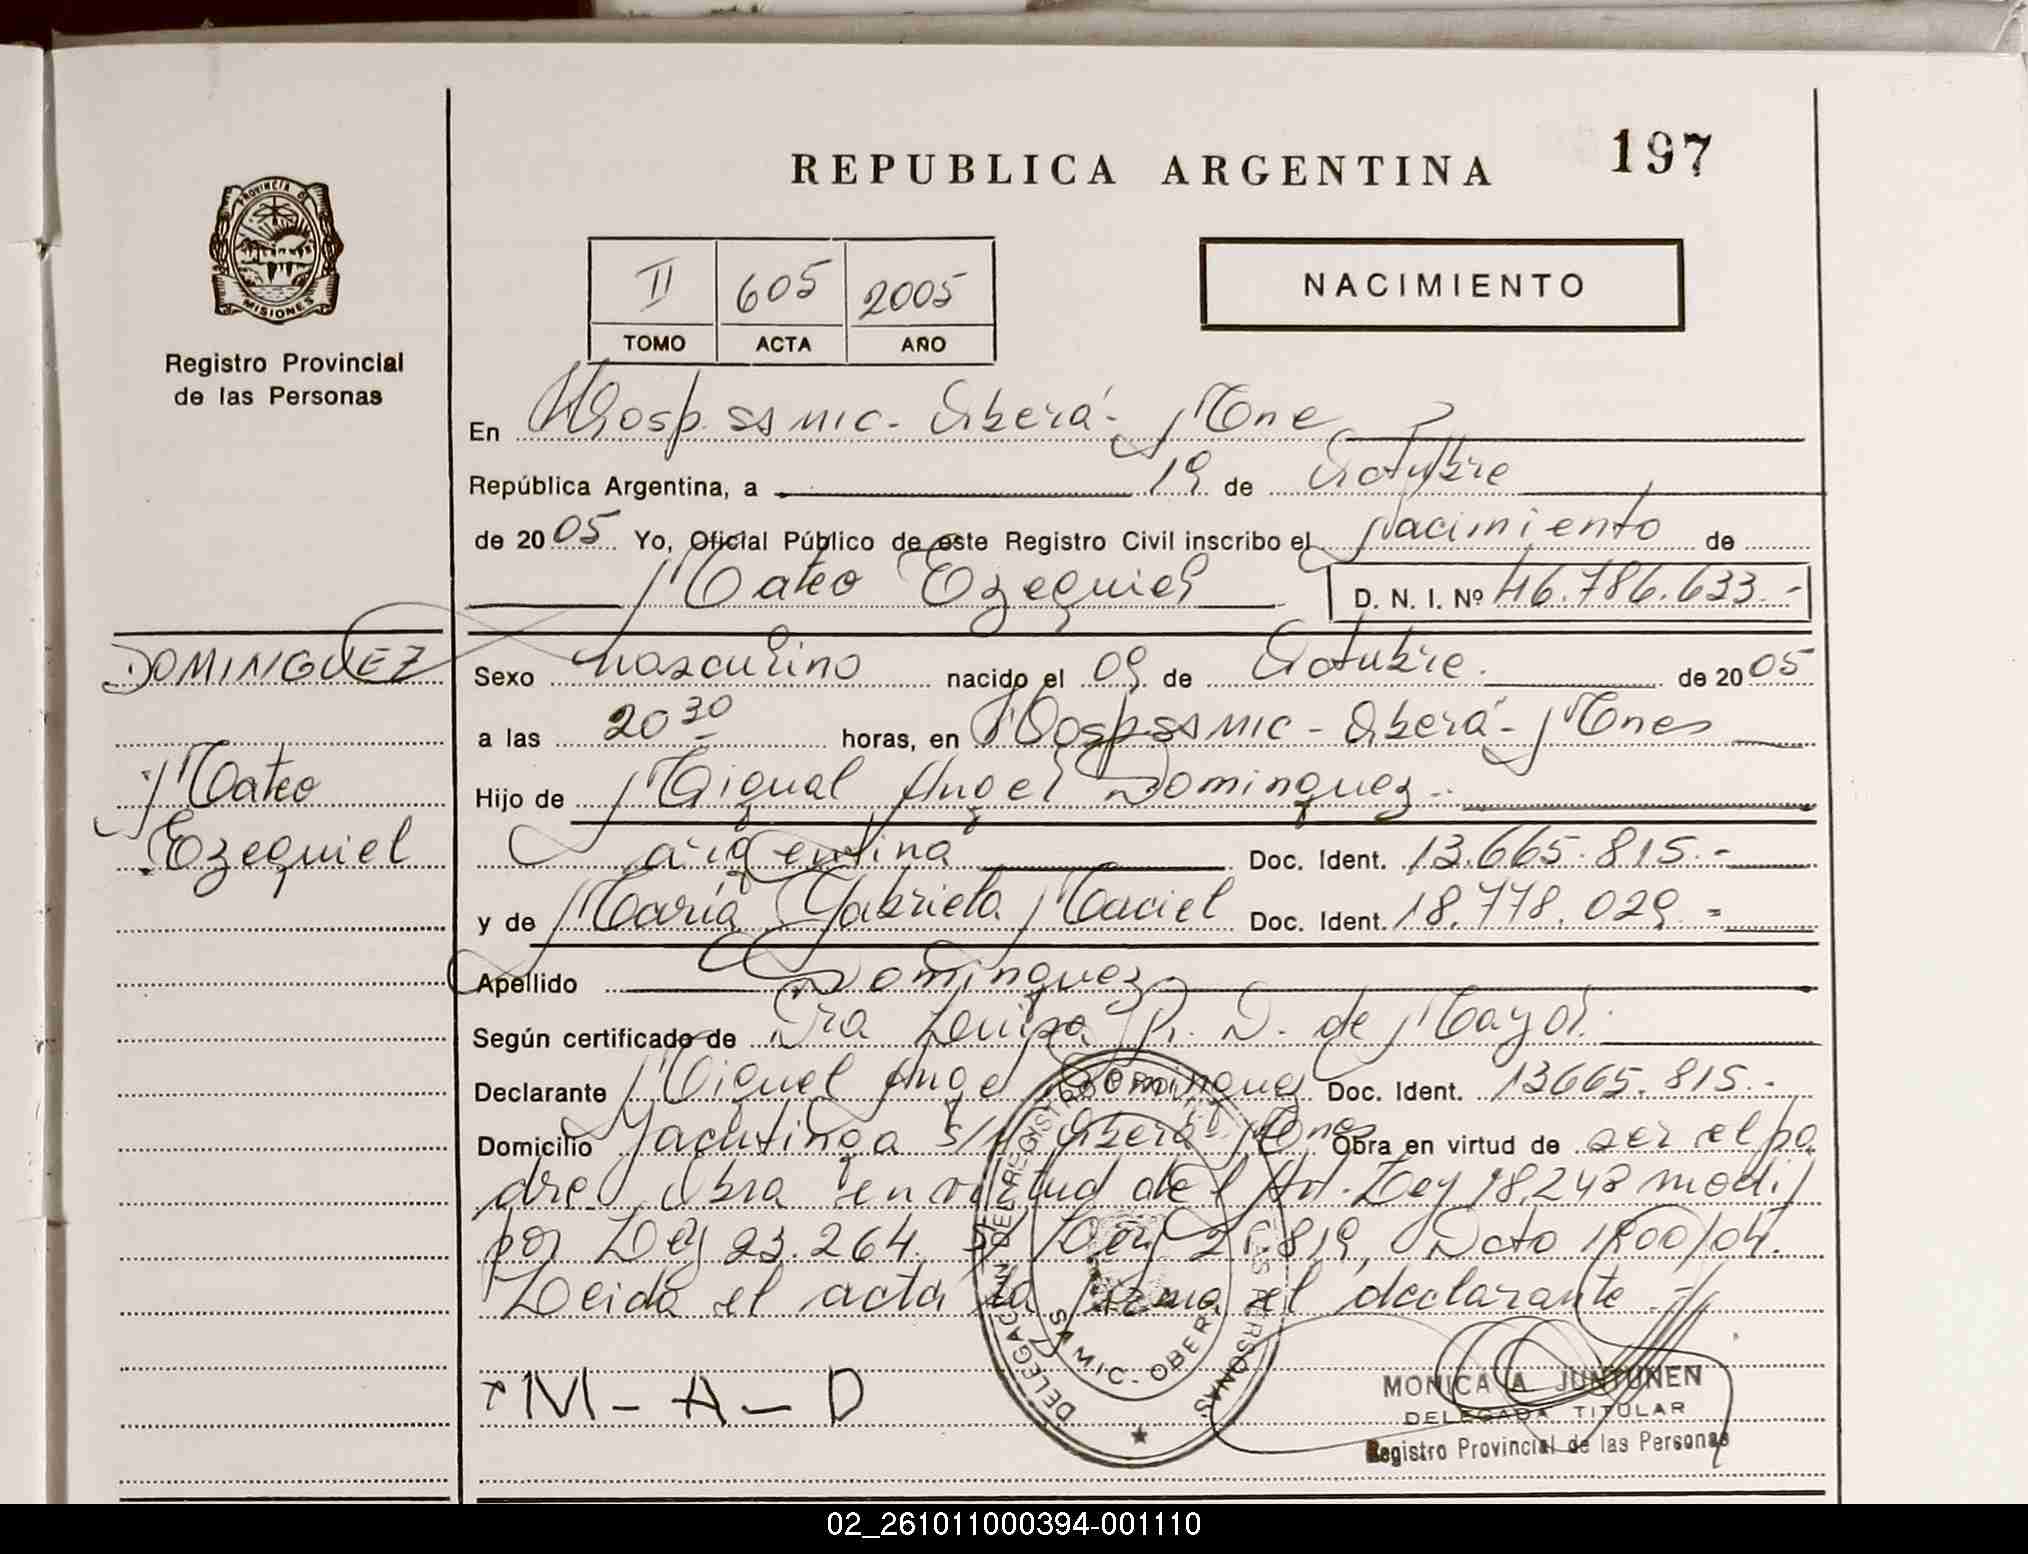 197
REPUBLICA ARGENTINA
PROVINCIA DE
MISIONES
Registro Provincial
de las Personas
II 605 2005
TOMO ACTA AÑO
NACIMIENTO
En Hosp. SAMIC - Oberá - Mnes
República Argentina, a 19 de Octubre
de 2005 Yo, Oficial Público de este Registro Civil inscribo el Nacimiento de
Mateo Ezequiel D. N. I. Nº 46.786.633.-
DOMINGUEZ
Mateo
Ezequiel
Sexo masculino nacido el 09 de Octubre. de 2005
a las 20 30 horas, en Hosp SAMIC - Oberá - Mnes
Hijo de Miguel Angel Dominguez.
argentina Doc. Ident. 13.665.815.-
y de María Gabriela Maciel Doc. Ident. 18.778.029.-
Apellido Dominguez
Según certificado de Dra Luisa R. D. de Mayol.
Declarante Miguel Angel Dominguez Doc. Ident. 13665.815.-
Domicilio Yachtinga S/N Oberá Mnes Obra en virtud de ser el pa
dre Obra en virtud del Art. Ley 18.248 modif
por Ley 23.264. y Ley 21.819, Dcto 1900/04.
Leida el acta la firma el declarante.-
M-A-D
DELEGACION DEL REGISTRO PROVINCIAL DE LAS PERSONAS
SAMIC. OBERA
MONICA A. JUNTUNEN
DELEGADA TITULAR
Registro Provincial de las Personas
02_261011000394-001110